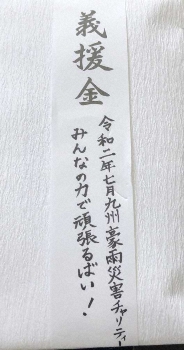 義援金
令和二年七月九州豪雨災害チャリティー
みんなの力で頑張るばい！